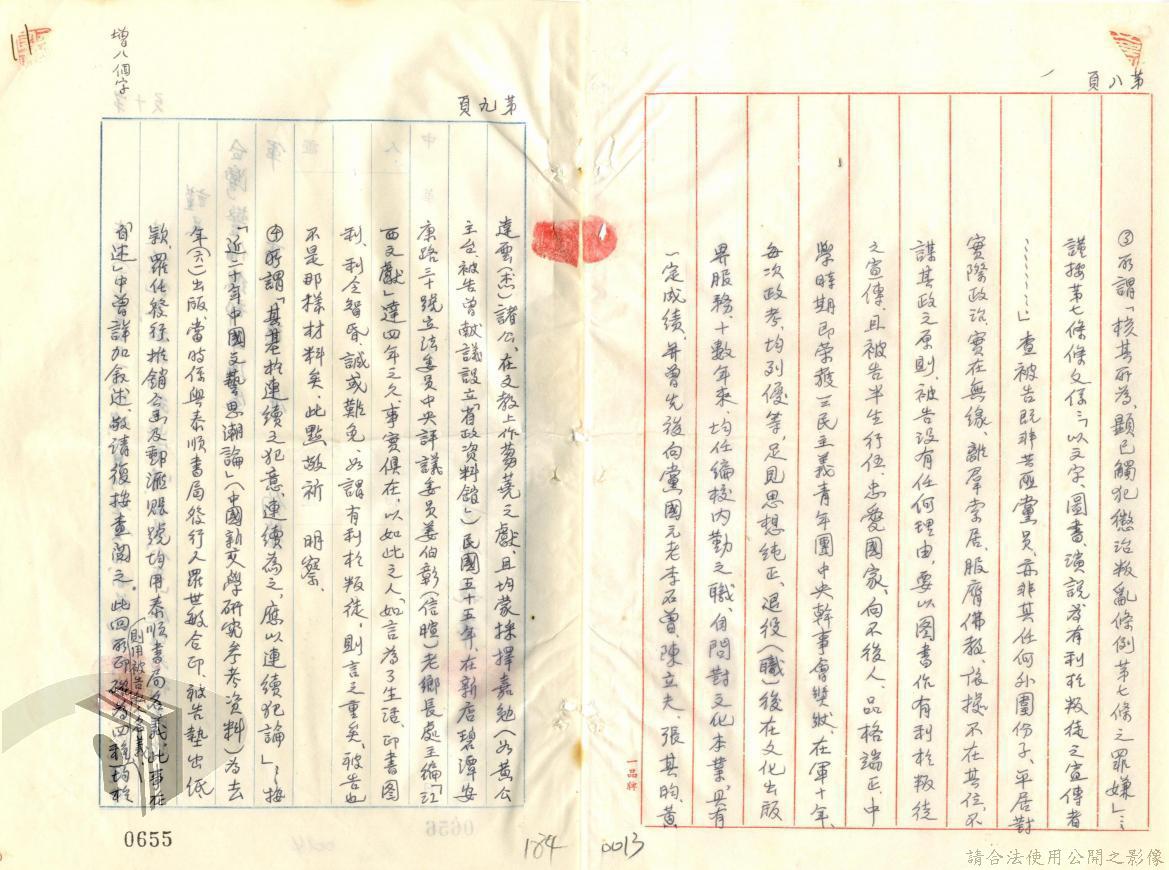 第八頁
③所謂「核其所為，顯已觸犯懲治叛亂條例第七條之罪嫌」……
謹按第七條條文係：「以文字、圖書、演說為有利於叛徒之宣傳者
……」查被告既非共匪黨員，亦非其任何外圍份子，平居對
實際政治，實在無緣，離群索居，服膺佛教，復操不在其位，不
謀其政之原則，被告沒有任何理由，要以图書作有利於叛徒
之宣傳，且被告半生行伍，忠愛國家，向不後人，品格端正，中
學時期即榮獲三民主義青年團中央幹事會獎狀，在軍十年，
每次政考，均列優等，足見思想純正，退役（職）後在文化出版
界服務，十數年來，均任編校內勤之職，自問對文化本業，具有
一定成績，并曾先後向黨國元老李石曾、陳立夫、張其昀、黃
一品牌
第九頁
達雲（杰）諸公，在文教上作芻蕘之獻，且均蒙採擇嘉勉（如黃公
主台，被告曾献議設立「省政資料館」）民國五十五年，在新店碧潭安
康路三十號立法委員中央評議委員姜伯彰（信暄）老鄉長處主編「江
西文獻」達四年之久，事實俱在，以如此之人，如言為了生活，印書图
利，利令智昏，誠或難免，如謂有利於叛徒，則言之重矣，被告也
不是那樣材料矣，此點敬祈　明察。
④所謂「其基於連續之犯意，連續為之，應以連續犯論」：按
「近二十年中國文藝思潮論」（中國新文學研究參考資料）為去
年（六二）出版，當時係與泰順書局發行人羅世敏合印，被告墊出紙
款，羅任發行，推銷全書及郵滙賬號均用泰順書局名義，此事在
「自述」中曾詳加敘述，敬請復按查閱之。此回所印
均於
增八個字
0655
184
0013
請合法使用公開之影像